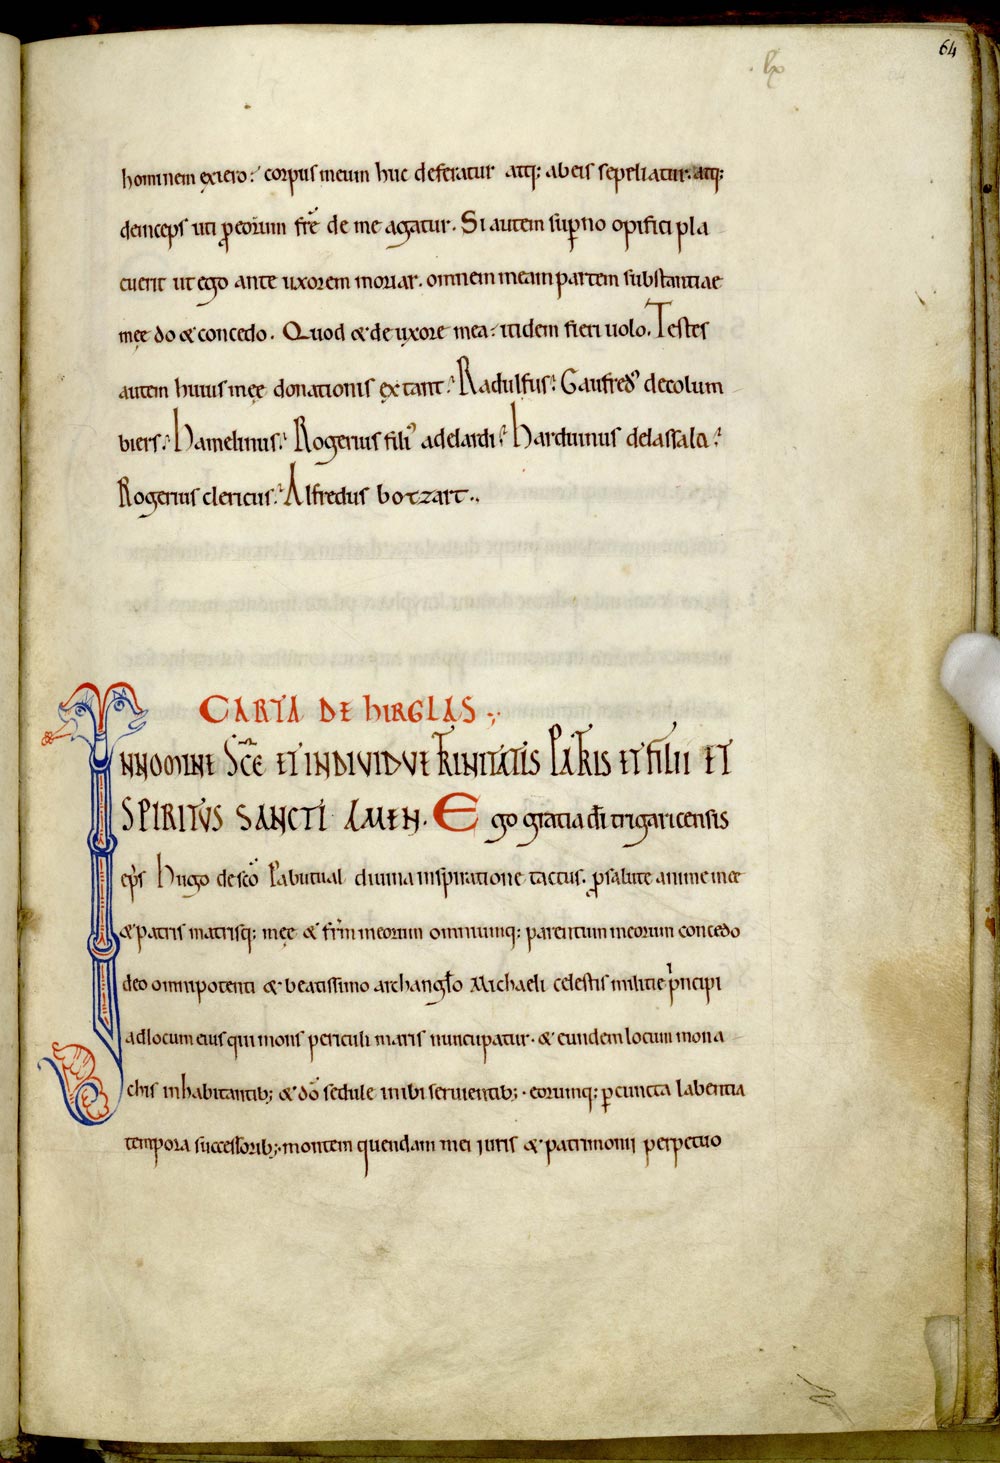 64
lx
hominem exiero: corpus meum huc deferatur atq; ab eis sepeliatur. atq;
deinceps uti p eorum fr̃e de me agatur. Si autem supno opifici pla
cuerit ut ego ante uxorem moriar. omnem meam partem substantiae
meę do & concedo. Quod & de uxore mea. itidem fieri uolo. Testes
autem huius meę donationis extant. Radulfus. Gaufred᾽ de colum
biers. Hamelinus. Rogerius fili᾽ adelardi. Harduinus de lassala.
Rogerius clericus. Alfredus botzart..
CARTA DE HIRGLAS
INNOMINE SC̃E ET INDIVIDVE TRINITATIS PATRIS ET FILII ET
SPIRITVS SANCTI AMEN. Ego gratia dĩ trigaricensis
ep̃s Hugo de sc̃o Pabutual diuina inspiratione tactus. p salute anime meę
& patris matrisq; meę & fr̃m meorum omniumq; parentum meorum concedo
deo omnipotenti & beatissimo archangl̃o Michaeli celestis militie pⁱncipi
ad locum eius qui mons periculi maris nuncupatur. & eundem locum mona
chis inhabitantib; & dõ sedule inibi seruientib;. eorumq; p cuncta labentia
tempora successorib;. montem quendam mei iuris & patrimonii perpetuo